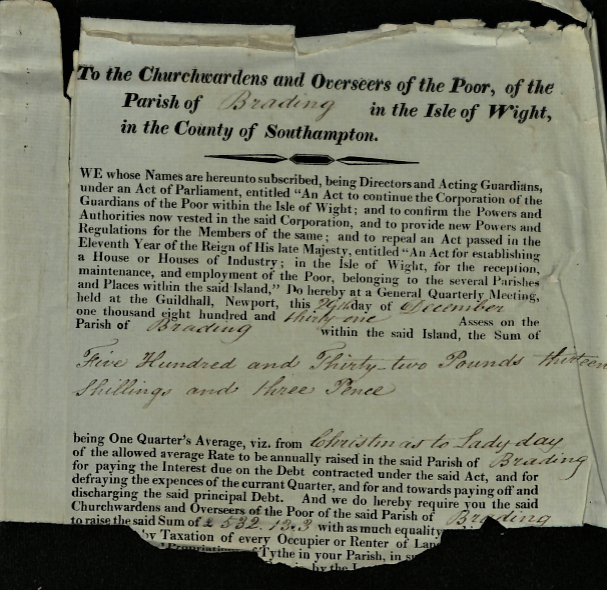 To the Churchwardens and Overseers of the Poor, of the
Parish of Brading in the Isle of Wight,
in the County of Southampton.
WE whose Names are hereunto subscribed, being Directors and Acting Guardians,
under an Act of Parliament, entitled "An Act to continue the Corporation of the
Guardians of the Poor within the Isle of Wight; and to confirm the Powers and
Authorities now vested in the said Corporation, and to provide new Powers and
Regulations for the Members of the same; and to repeal an Act passed in the
Eleventh Year of the Reign of His late Majesty, entitled "An Act for establishing
a House or Houses of Industry; in the Isle of Wight, for the reception,
maintenance, and employment of the Poor, belonging to the several Parishes
and Places within the said Island," Do hereby at a General Quarterly Meeting,
held at the Guildhall, Newport, this 29th day of December
one thousand eight hundred and thirty-one Assess on the
Parish of Brading within the said Island, the Sum of
Five Hundred and Thirty-two Pounds thirteen
Shillings and three Pence
being One Quarter's Average, viz. from Christmas to Lady day
of the allowed average Rate to be annually raised in the said Parish of Brading
for paying the Interest due on the Debt contracted under the said Act, and for
defraying the expences of the currant Quarter, and for and towards paying off and
discharging the said principal Debt. And we do hereby require you the said
Churchwardens and Overseers of the Poor of the said Parish of Brading
to raise the said Sum of £ 532.13.3 with as much equality
by Taxation of every Occupier or Renter of
Tythe in your Parish, in
by the